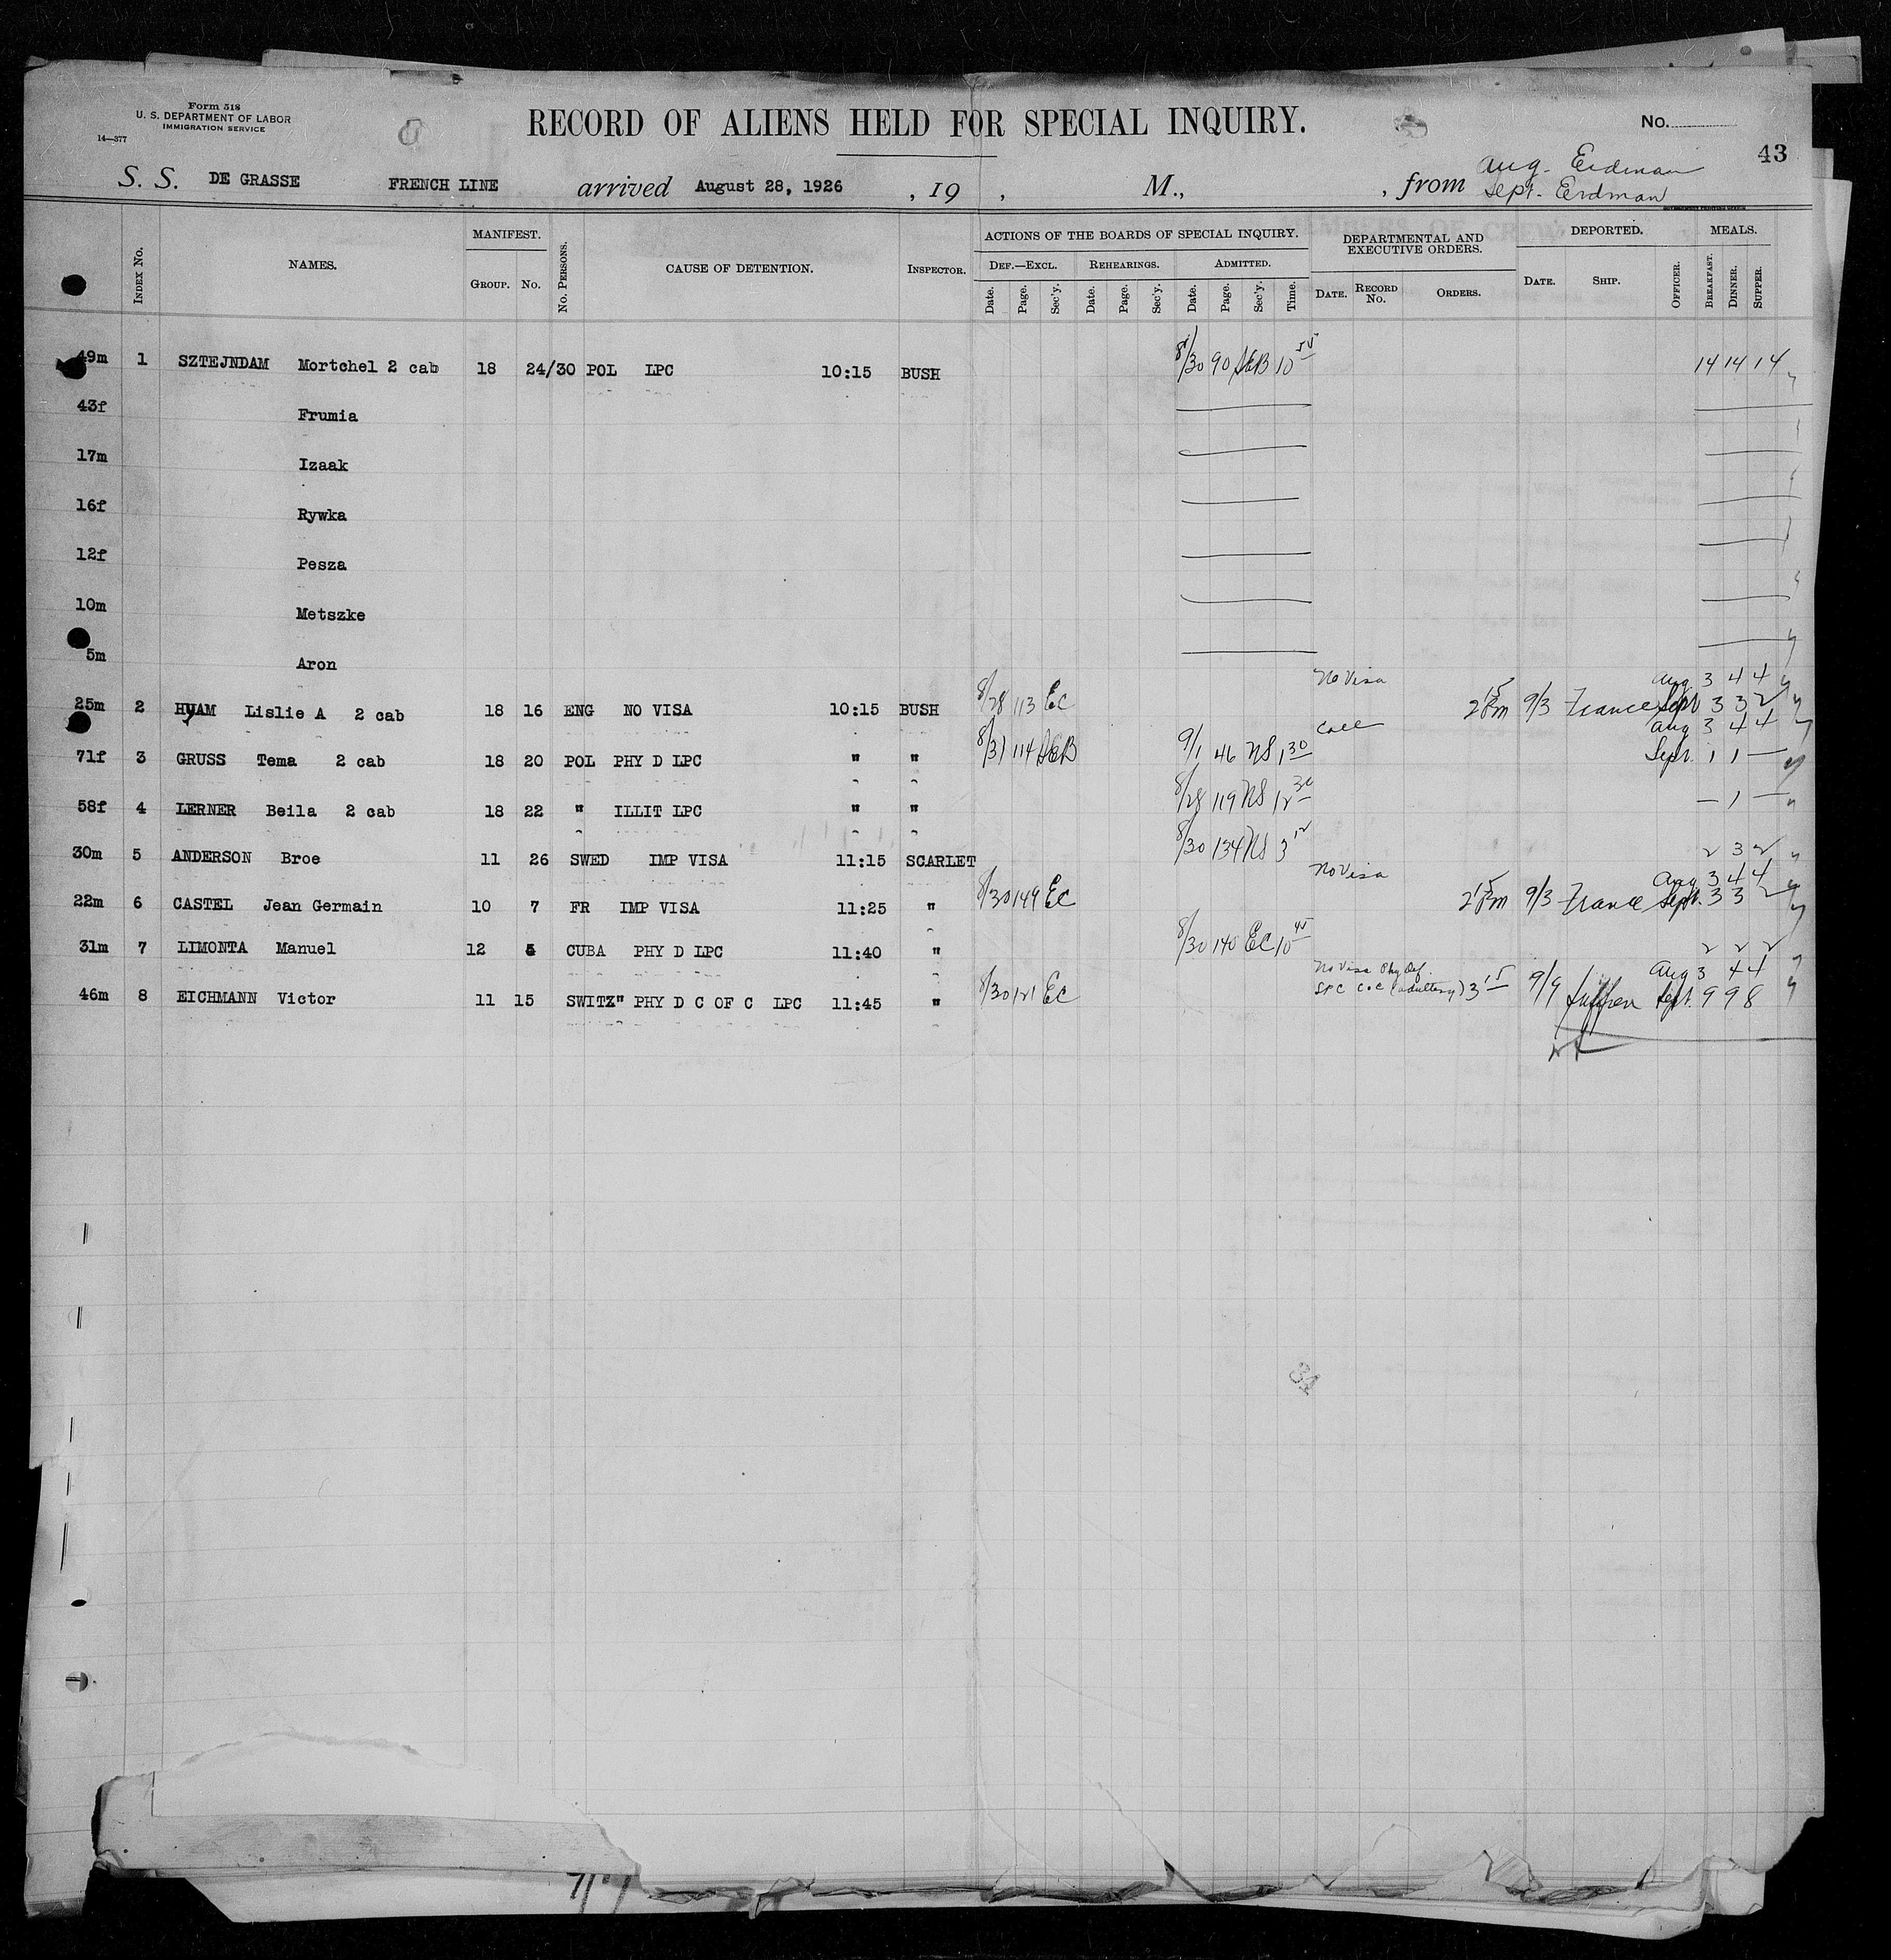 Form 518
U. S. DEPARTMENT OF LABOR
IMMIGRATION SERVICE
14—377
RECORD OF ALIENS HELD FOR SPECIAL INQUIRY.
No.
43
S. S. DE GRASSE FRENCH LINE arrived August 28, 1926 , 19 , M., , from Aug. Erdman
Sept. Erdman
INDEX No. NAMES. MANIFEST. GROUP. No. No. PERSONS. CAUSE OF DETENTION. INSPECTOR. ACTIONS OF THE BOARDS OF SPECIAL INQUIRY. DEPARTMENTAL AND EXECUTIVE ORDERS. DEPORTED. MEALS.
DEF.—EXCL. REHEARINGS. ADMITTED.
Date. Page. Sec'y. Date. Page. Sec'y. Date. Page. Sec'y. Time. DATE. RECORD No. ORDERS. DATE. SHIP. OFFICER. BREAKFAST. DINNER. SUPPER.
49m 1 SZTEJNDAM Mortchel 2 cab 18 24/30 POL LPC 10:15 BUSH 8/30 90 10 14 14 14
43f Frumia
17m Izaak
16f Rywka
12f Pesza
10m Metszke
5m Aron
No Visa Aug 3 4 4
25m 2 HyAM Lislie A 2 cab 18 16 ENG NO VISA 10:15 BUSH 8/28 113 EC 2 15 Pm 9/3 France Sept 3 3 2
Aug 3 4 4
71f 3 GRUSS Tema 2 cab 18 20 POL PHY D LPC " " 8/31 114 9/1 46 NS 1 30 Sept. 1 1 —
58f 4 LERNER Beila 2 cab 18 22 " ILLIT LPC " " 8/28 119 NS 12 30 — 1 —
30m 5 ANDERSON Broe 11 26 SWED IMP VISA 11:15 SCARLET 8/30 134 NS 3 2 3 2
No Visa Aug 3 4 4
22m 6 CASTEL Jean Germain 10 7 FR IMP VISA 11:25 " 8/30 149 EC 2 15 Pm 9/3 France Sept. 3 3 2
31m 7 LIMONTA Manuel 12 5 CUBA PHY D LPC 11:40 " 8/30 140 EC 10 45 2 2 2
No Visa Phy Def. Aug 3 4 4
46m 8 EICHMANN Victor 11 15 SWITZ" PHY D C OF C LPC 11:45 " 8/30 121 EC LPC C.C (adultery) 3 15 9/9 Suffren Sept. 9 9 8
34